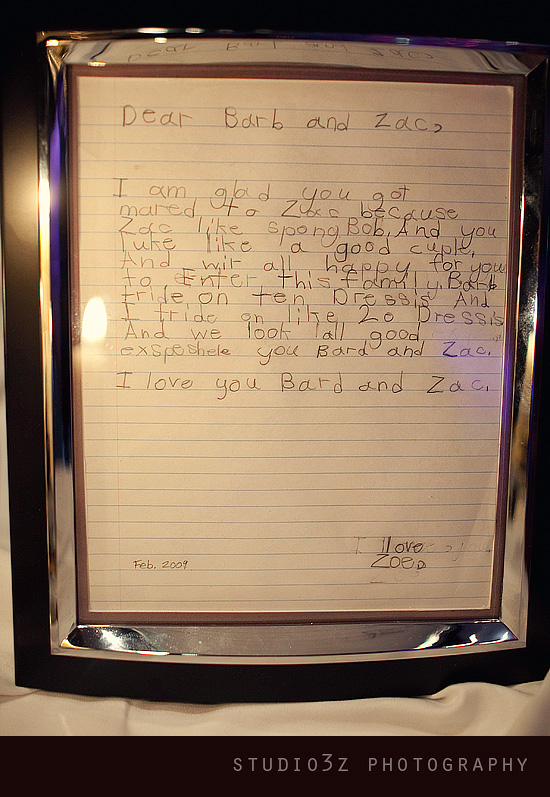 Dear Barb and Zac,
I am glad you got
mared to Zac because
Zac like spong Bob. And you
luke like a good cuple,
And wir all happy for you
to Enter this family. Barb
tride on ten Dressis And
I tride on like 20 Dressis
And we look all good
exspeshele you Bard and Zac.
I love you Bard and Zac.
love
Zoe
Feb. 2009
STUDIO3Z PHOTOGRAPHY